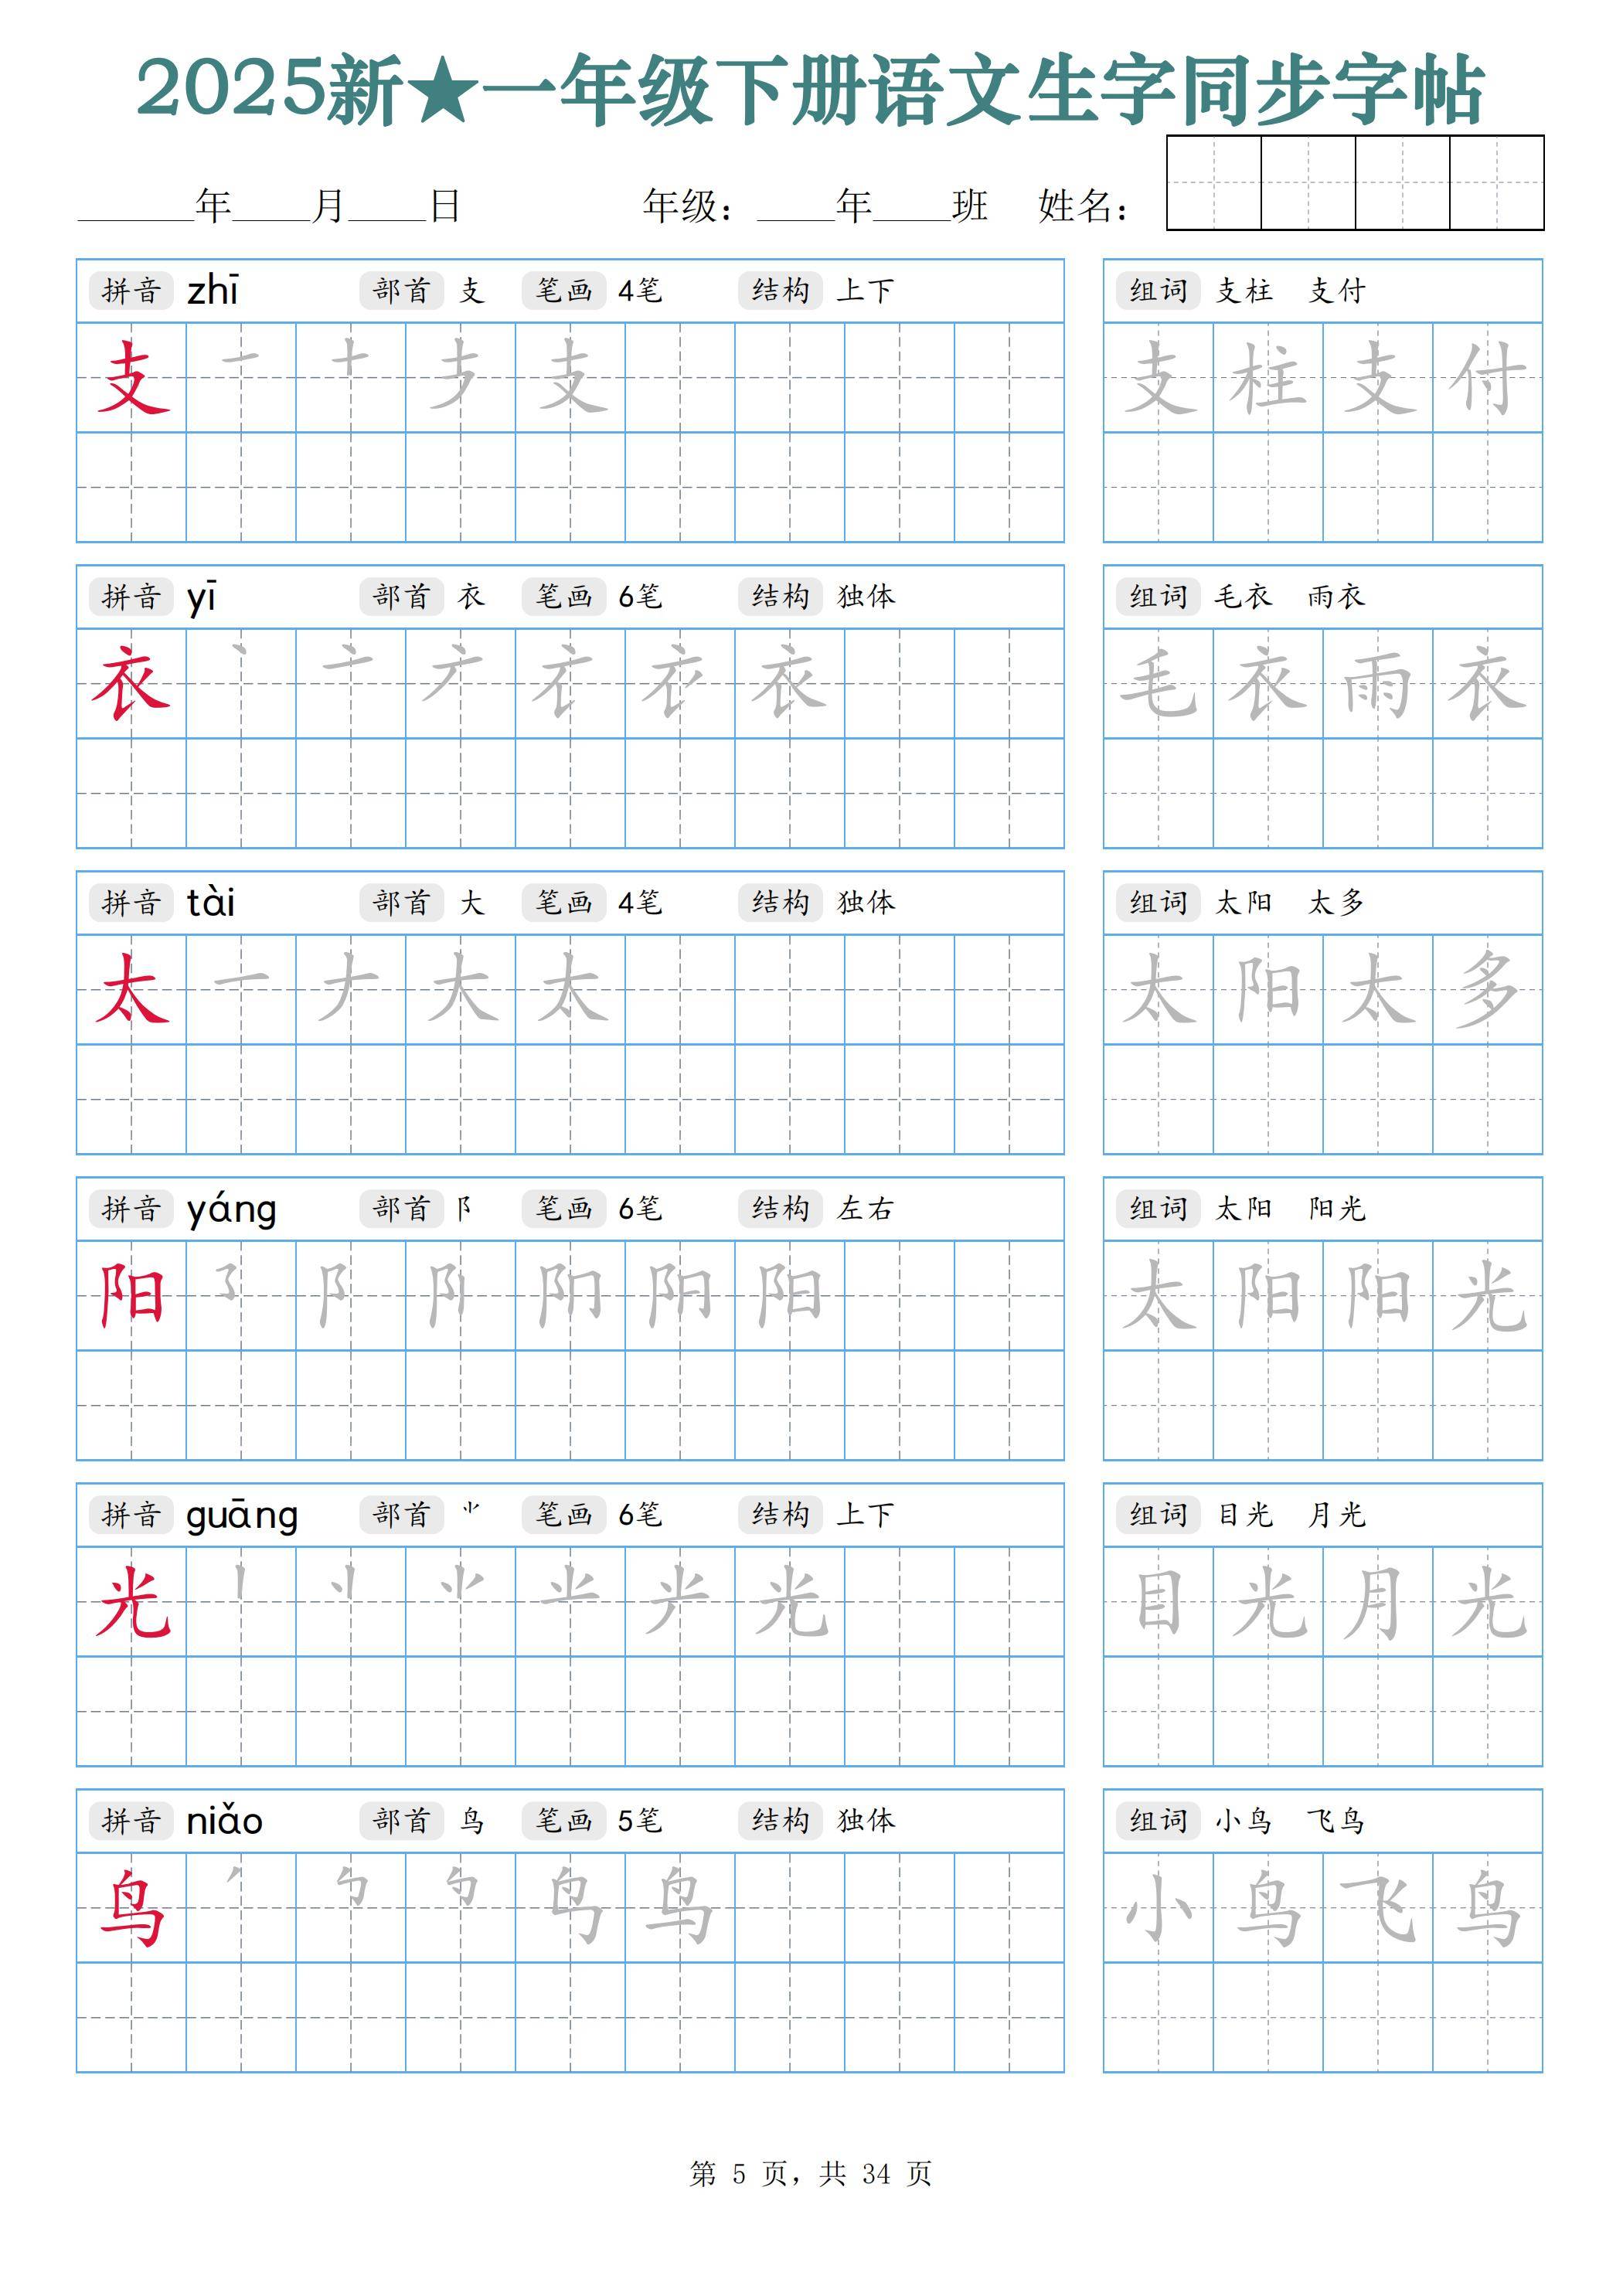 2025新★一年级下册语文生字同步字帖
______年____月____日 年级：____年____班 姓名：
拼音 zhī 部首 支 笔画 4笔 结构 上下 组词 支柱 支付
支 一 十 支 支柱支付
拼音 yī 部首 衣 笔画 6笔 结构 独体 组词 毛衣 雨衣
衣 丶 亠 衣 毛衣雨衣
拼音 tài 部首 大 笔画 4笔 结构 独体 组词 太阳 太多
太 一 ナ 大 太 太阳太多
拼音 yáng 部首 阝 笔画 6笔 结构 左右 组词 太阳 阳光
阳 阝 阳 太阳阳光
拼音 guāng 部首 ⺌ 笔画 6笔 结构 上下 组词 目光 月光
光 丨 ⺌ 光 目光月光
拼音 niǎo 部首 鸟 笔画 5笔 结构 独体 组词 小鸟 飞鸟
鸟 丿 鸟 小鸟飞鸟
第 5 页，共 34 页